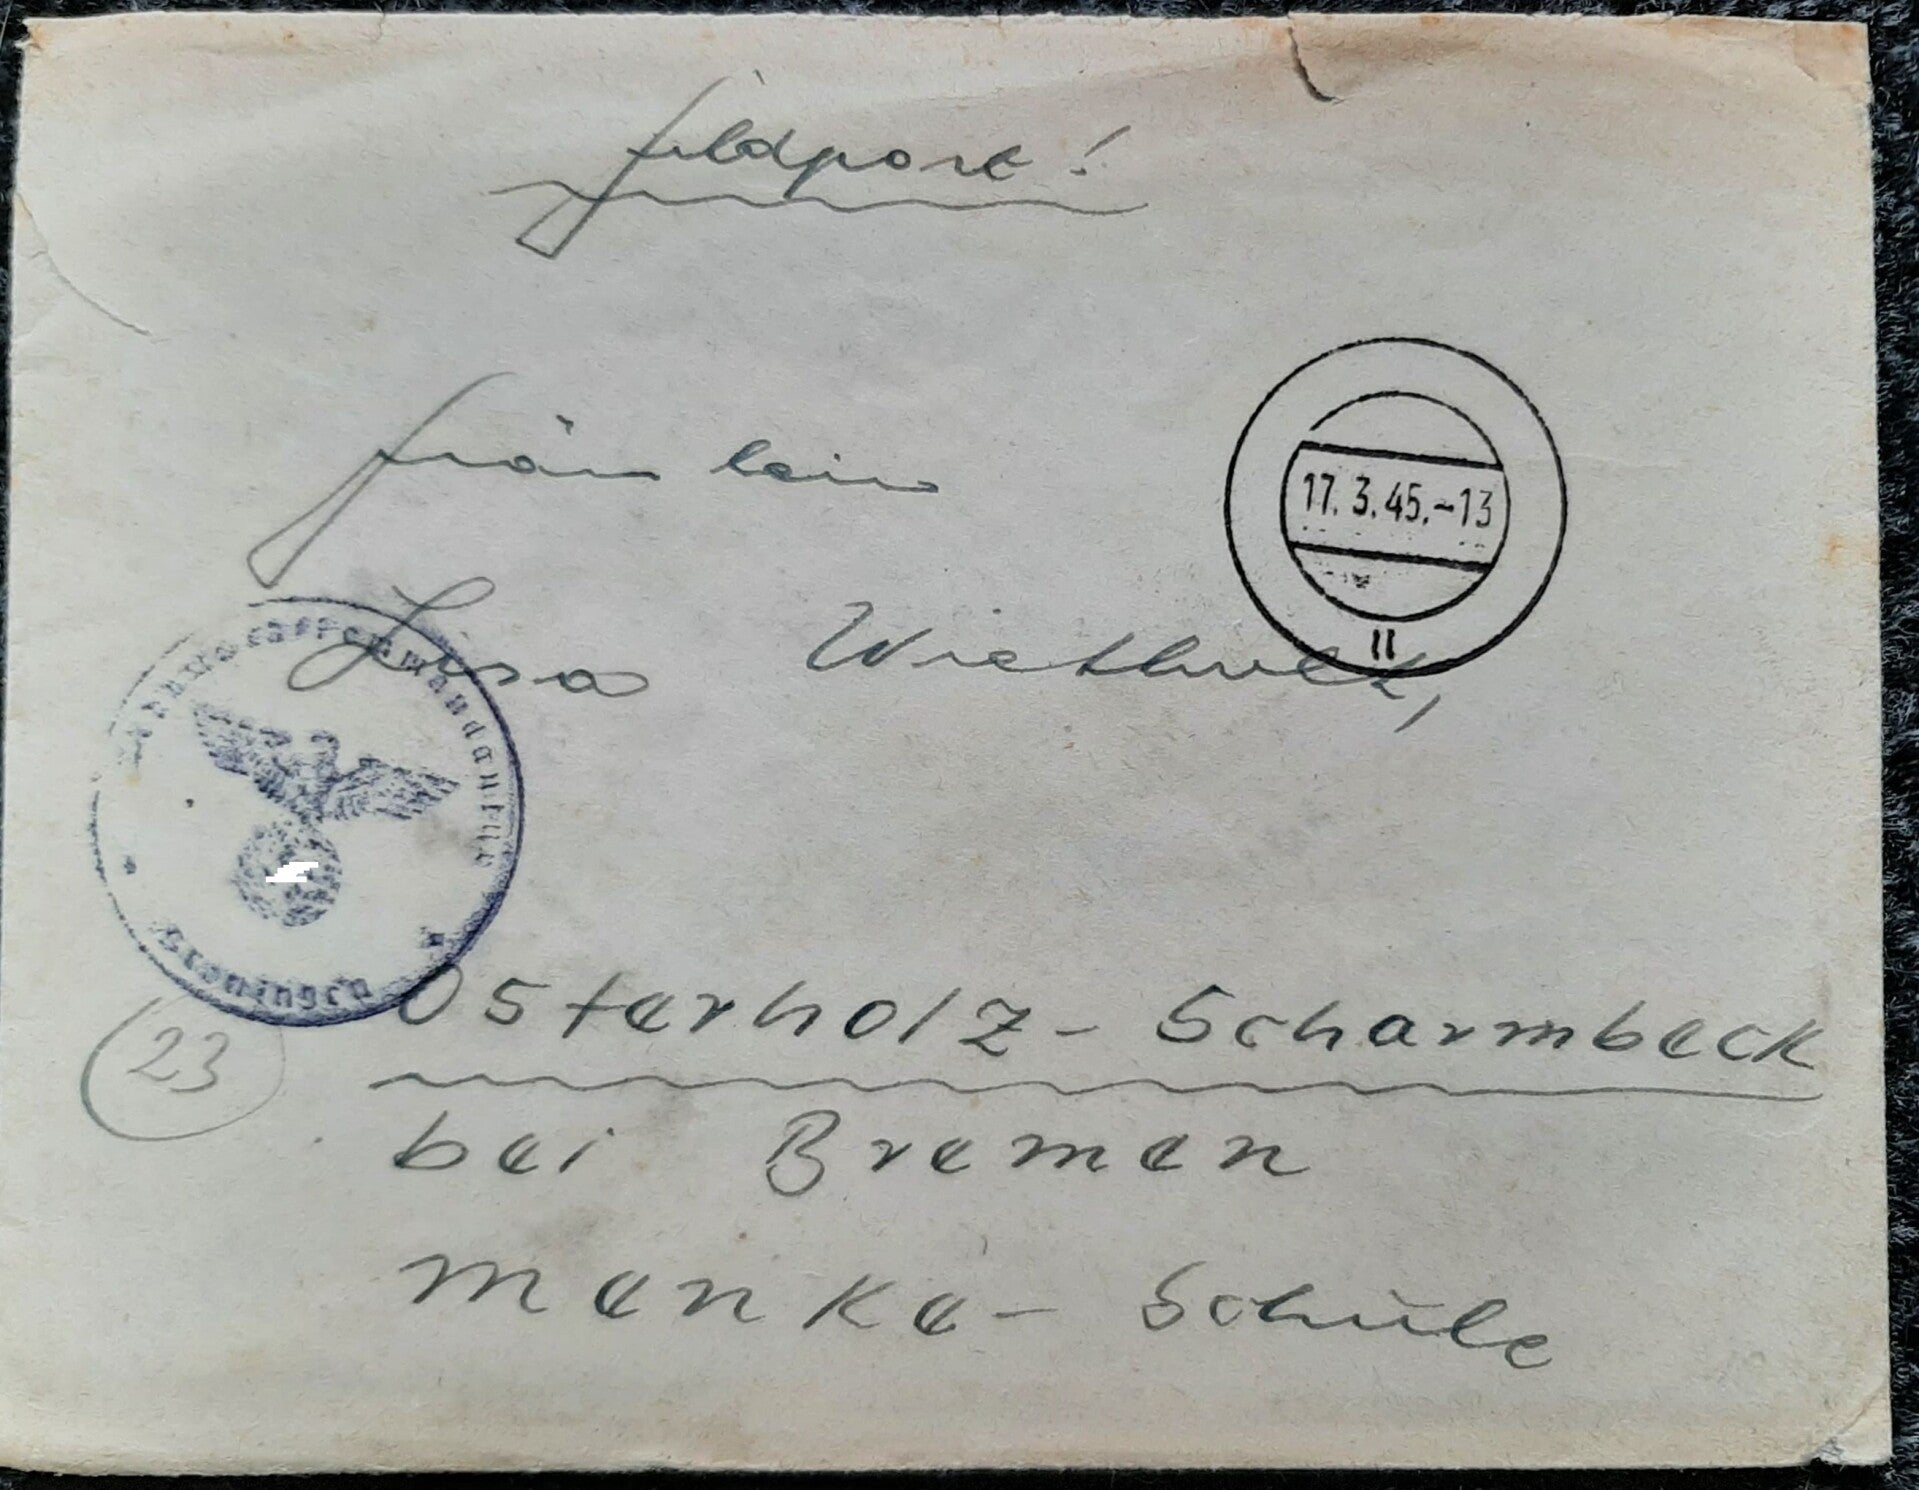 Feldpost!
Fräulein
17.3.45.-13
II
Lisa Wiethult,
Groningen
Osterholz-Scharmbeck
23
bei Bremen
Menke-Schule